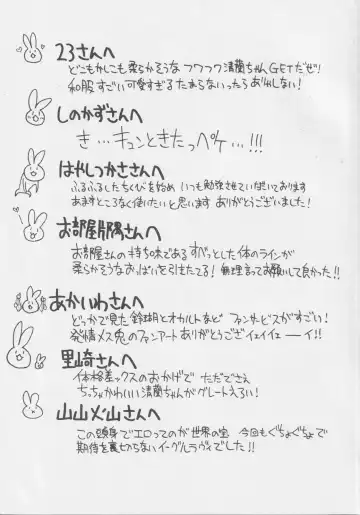 23さんへ
どこもかしこも柔らかそうなフワフワ清蘭ちゃんGETだぜ!
和服すごい可愛すぎるたまらないったらありゃしない!
しのかずさんへ
き…キュンときたっペケ…!!!
はやしつかささんへ
ふるふるしたちくびを始め いつも勉強させていただいております
あますところなく使いたいと思います ありがとうございました!
お部屋開隅さんへ
お部屋さんの持ち味であるすべっとした体のラインが
柔らかそうなおっぱいを引きたてる! 無理言ってお願いして良かった!!
あかいわさんへ
どっかで見た鈴瑚とオカルトなど ファンサービスがすごい!
発情メス兎のファンアートありがとうござイェイイェーーイ!!
里崎さんへ
体格差ックスのおかげで ただでさえ
ちっちゃかわいい清蘭ちゃんがグレートえろい!
山山〆山さんへ
この頭身でエロってのが世界の宝 今回もぐちょぐちょで
期待を裏切らないイーグルラヴィでした!!